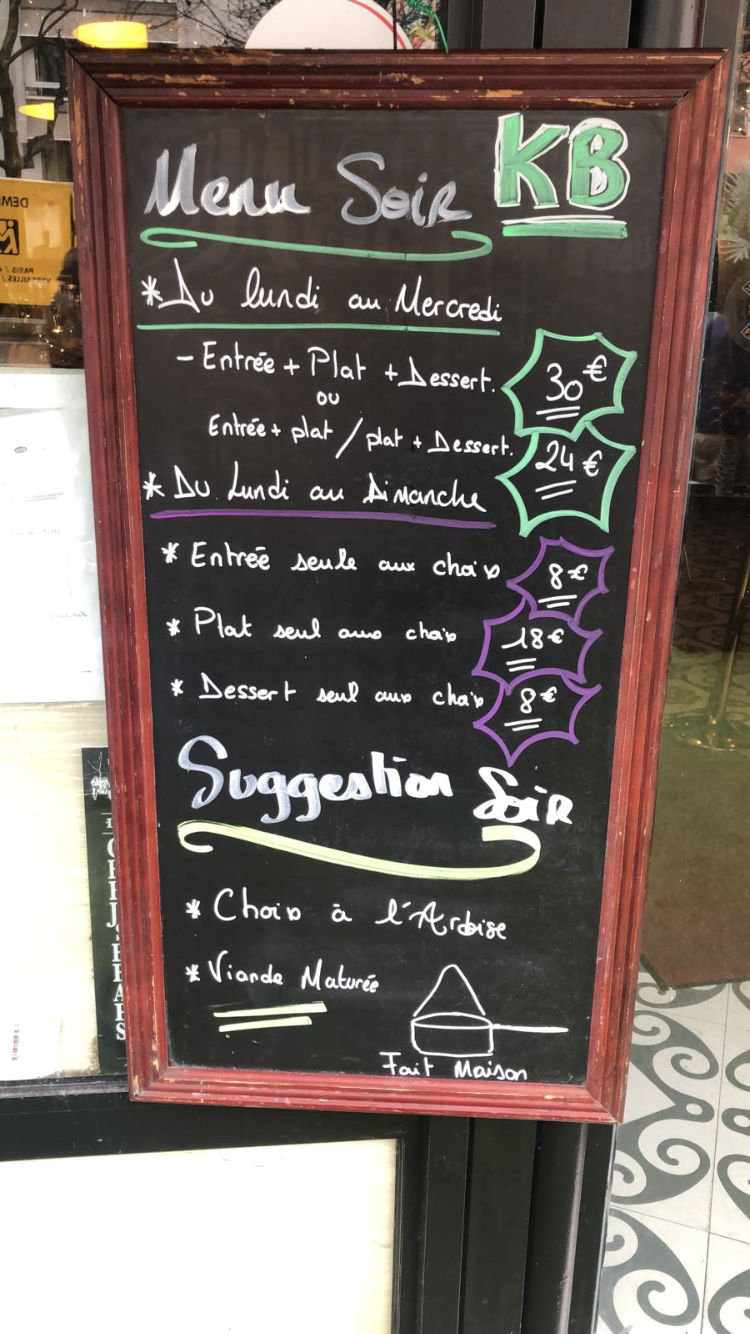 Menu Soir KB
* Du lundi au Mercredi
- Entrée + Plat + Dessert. 30 €
ou
Entrée + plat / plat + Dessert. 24 €
* Du Lundi au Dimanche
* Entrée seule aux choix 8 €
* Plat seul aux choix 18 €
* Dessert seul aux choix 8 €
Suggestion Soir
* Choix à l'Ardoise
* Viande Maturée
Fait Maison